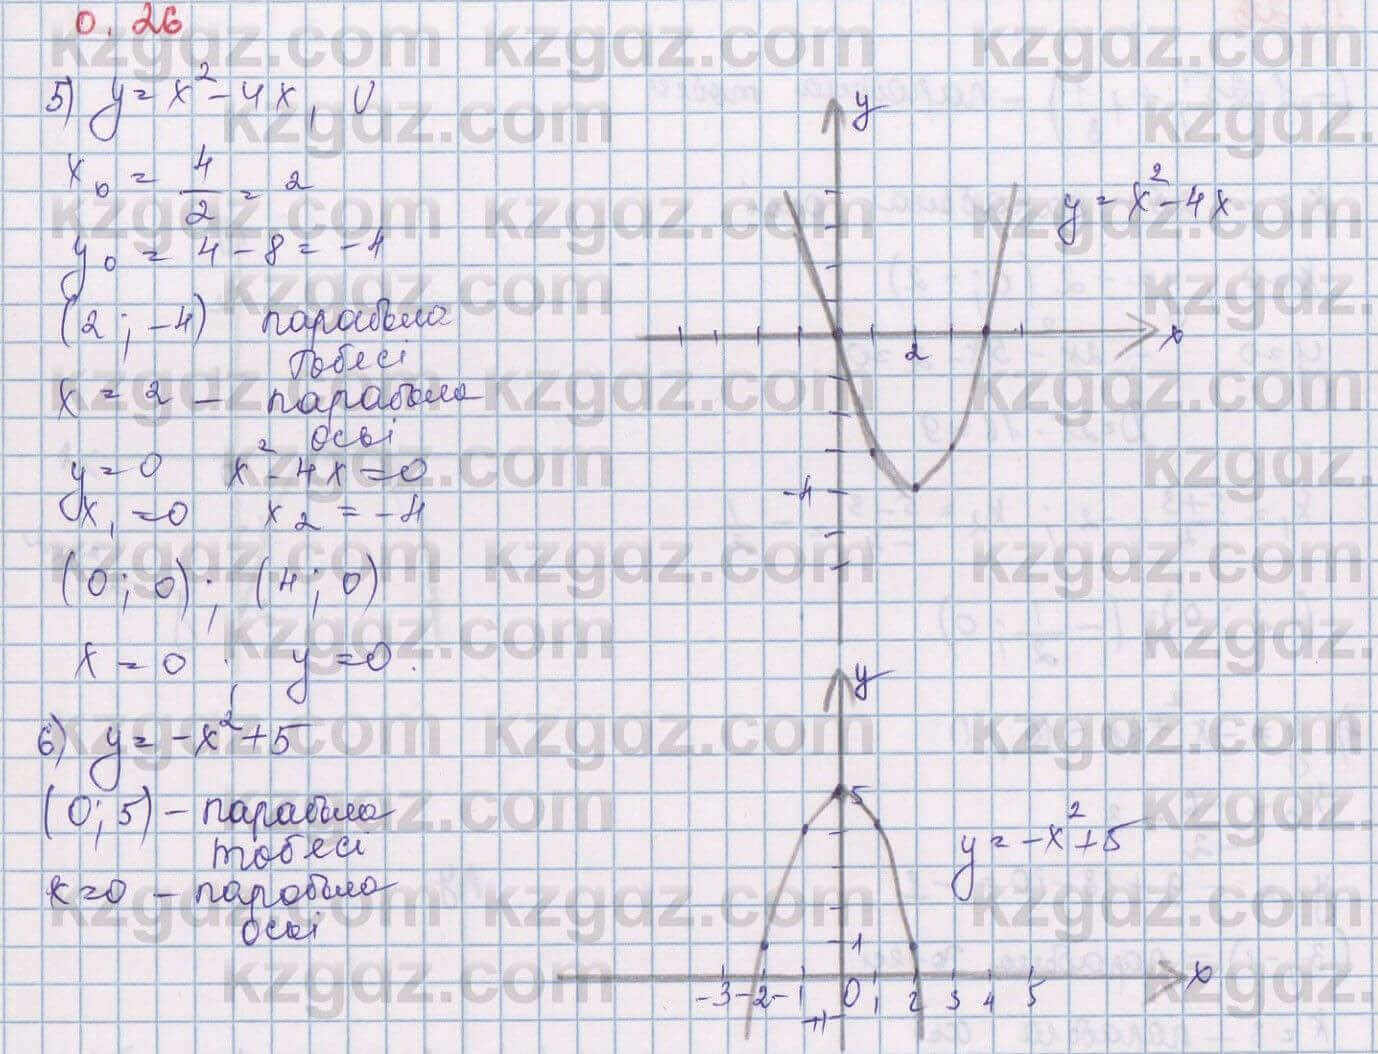 0.26
5) y = x² - 4x, U
x₀ = 4/2 = 2
y₀ = 4 - 8 = -4
(2; -4) парабыла
тобесі
x = 2 - парабыла
осы
y = 0 x² - 4x = 0
x₁ = 0 x₂ = -4
(0; 0); (4; 0)
x = 0; y = 0.
y
y = x² - 4x
2
x
-4
6) y = -x² + 5
(0; 5) - парабыла
тобесі
x = 0 - парабыла
осы
y
5
y = -x² + 5
1
-3 -2 -1 0 1 2 3 4 5
x
-1
kzgdz.com